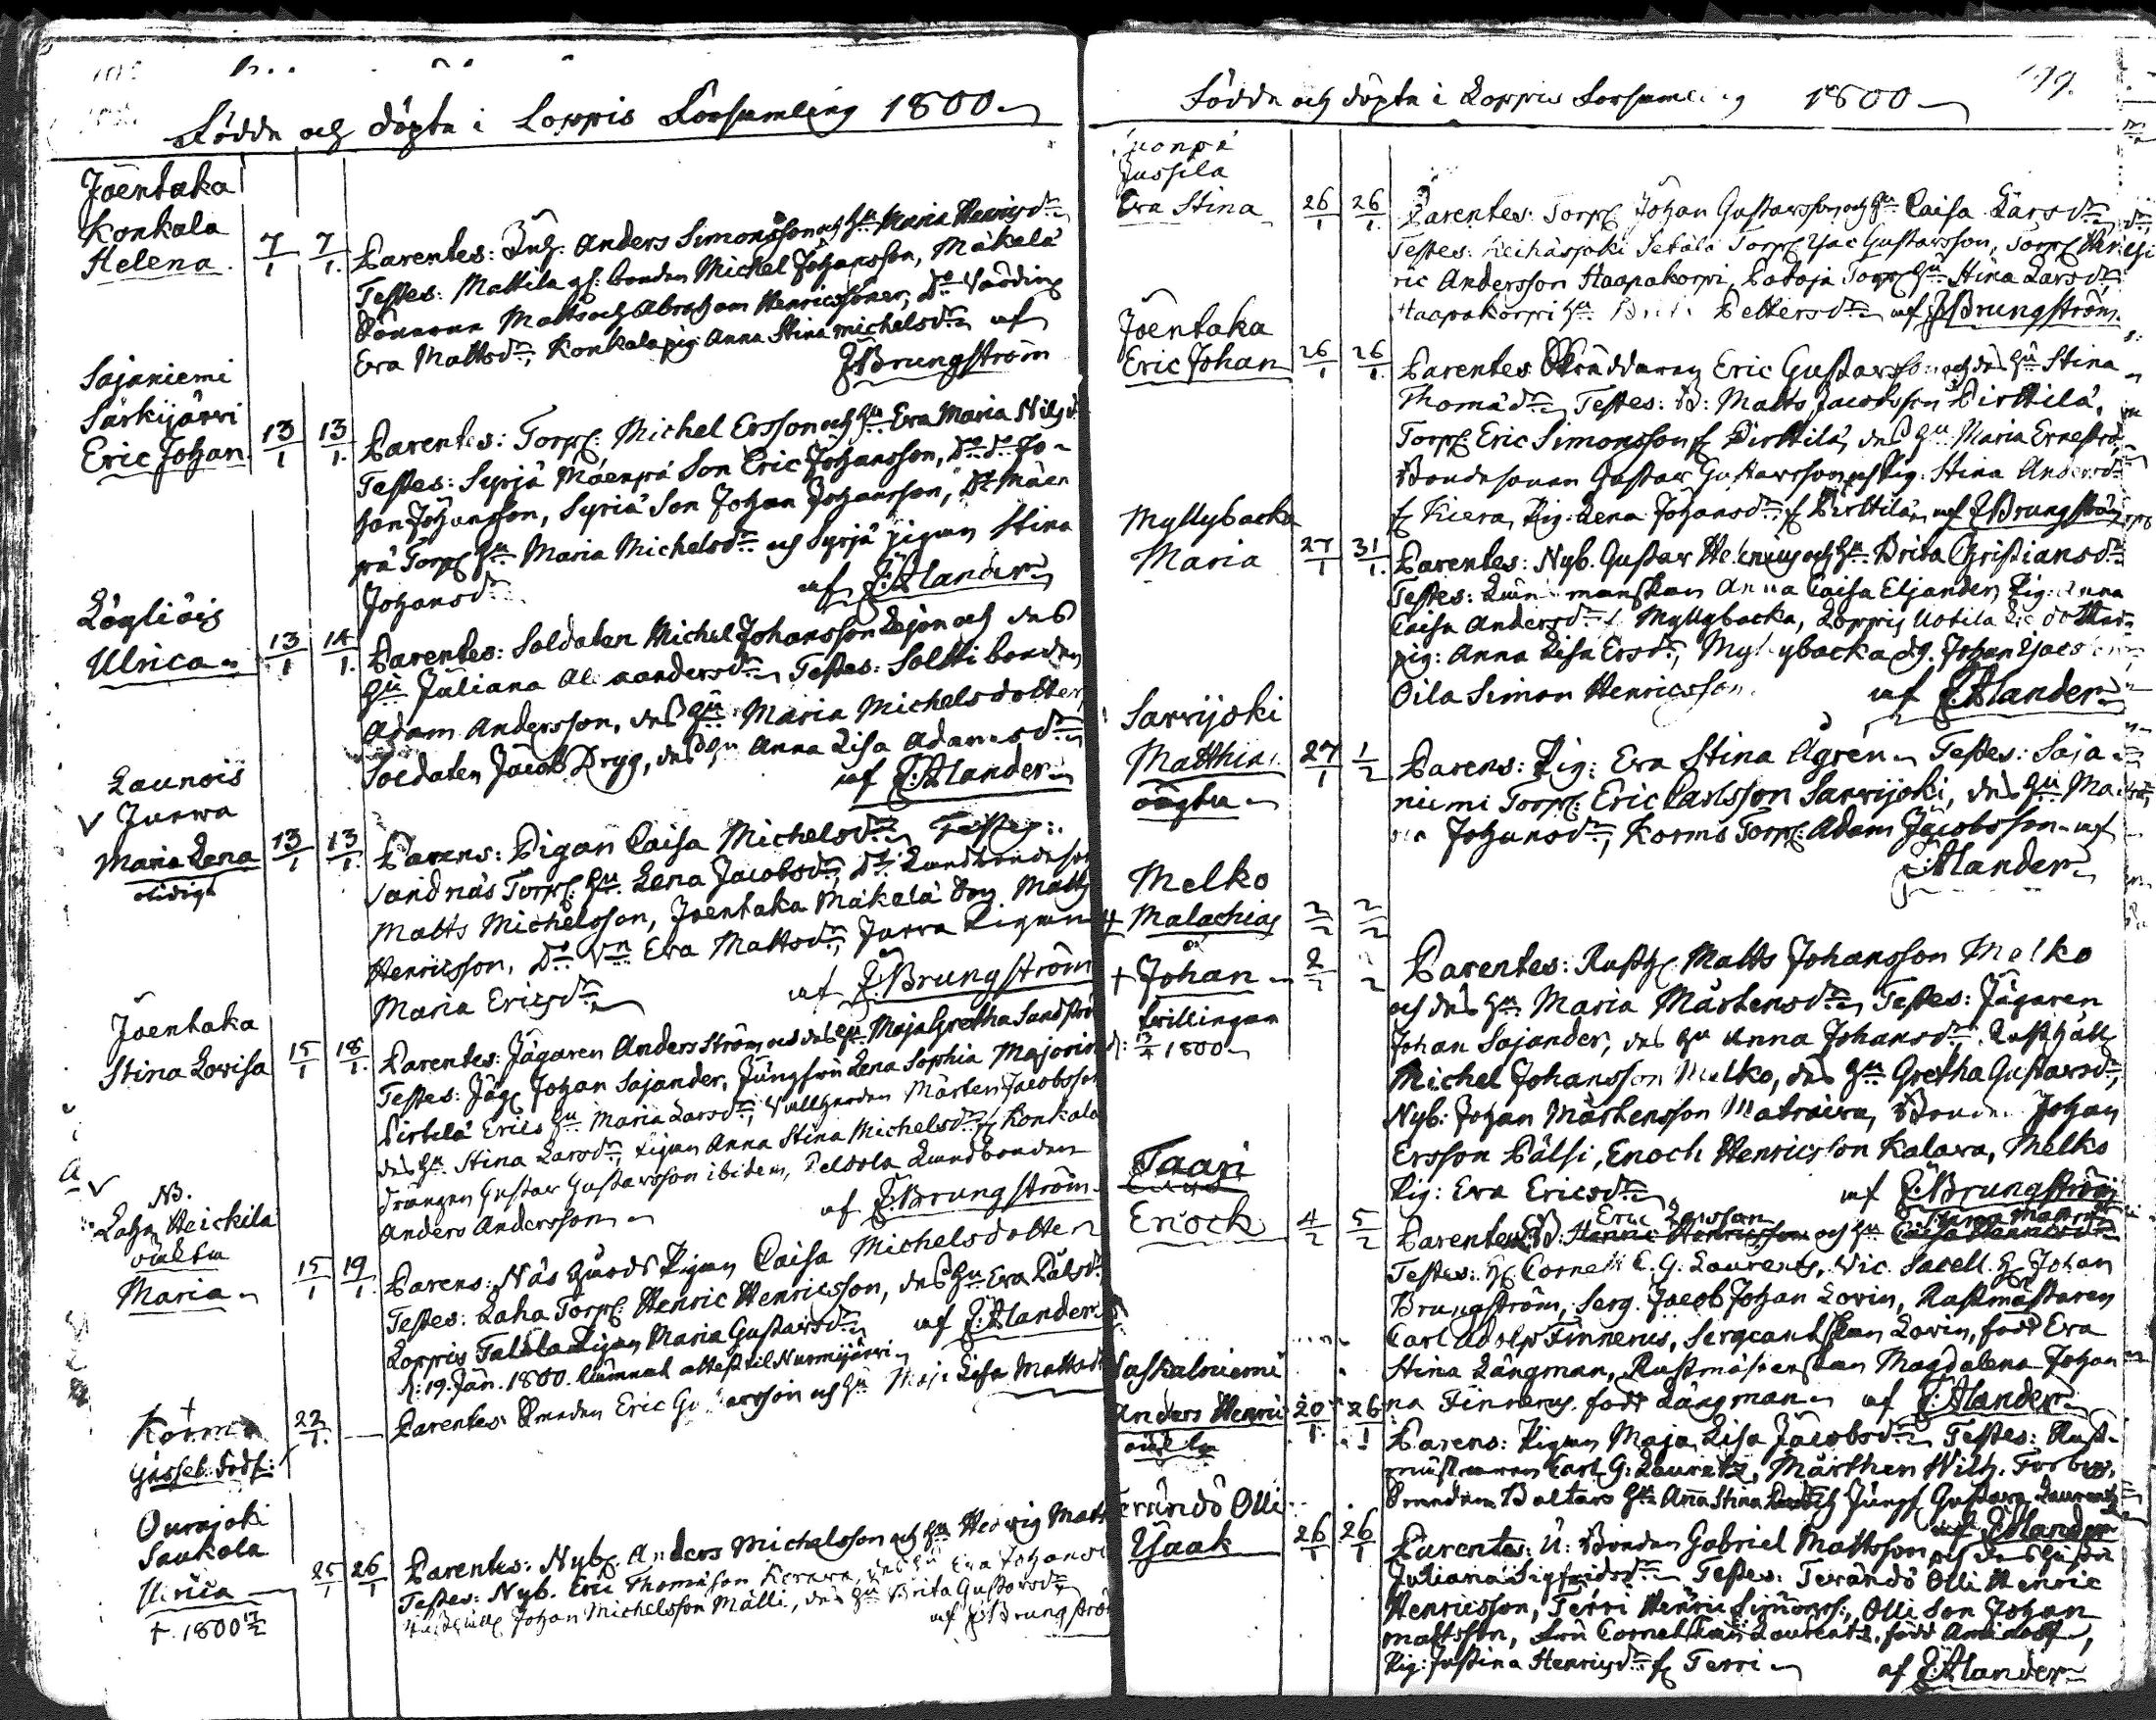 Födde och döpte i Loppis Församling 1800
Joentaka
Konkala
Helena 7/1 7/1 Parentes: Inh. Anders Simonsson och hu Maria Henricsdr
Testes: Mattila gl: bonden Michel Johansson, Mäkelä
Sönerne Matts och Abraham Henricssöner, Do Värdin
Eva Mattsdr, Konkala pig: Anna Stina Michelsdr af
J: Brungström
Sajaniemi
Särkijärvi
Eric Johan 13/1 13/1 Parentes: Torp: Michel Ersson och hu Eva Maria Nilsd
Testes: Syrjä Mäenpä Son Eric Johansson, Do Do Jo-
han Johansson, Syriä Son Johan Johansson, Do Mäen
pä Torp hu Maria Michelsdr och Syrjä pigan Stina
Johansdr af E: Alander
Lögliäis
Ulrica 13/1 14/1 Parentes: Soldaten Michel Johansson Lejon och des
hu Juliana Alexandersdr Testes: Soltti bonden
Adam Andersson, des hu Maria Michelsdotter
Soldaten Jacob Dryg, des hu Anna Lisa Adamsdr
af E: Alander
Launois
V Jurwa
Maria Lena 13/1 13/1 Parens: Pigan Caisa Michelsdr Testes:
olidigt
Sandnäs Torp: hu Lena Jacobsdr, Do Landbondeson
Matts Michelsson, Joentaka Mäkelä Matts
Henricsson, Do Eva Mattsdr, Jurva Pigan
Maria Ericsdr af J: Brungström
Joentaka
Stina Lovisa 15/1 18/1 Parentes: Jägaren Anders Ström och des hu Maja Gretha Sandströ
Testes: Jäg: Johan Sajander, Jungfru Lena Sophia Majorin
Pirtilä Erics hu Maria Larsdr, Vallherden Mårten Jacobsson
des hu Stina Larsdr, pigan Anna Stina Michelsdr f Konkala
drängen Gustav Gustavsson ibidem, Peldola Landbonden
Anders Andersson af J: Brungström
V NB.
Laha Heickilä
oäkta
Maria 15/1 19/1 Parens: Näs Gårds Pigan Caisa Michelsdotter
Testes: Laha Torp: Henric Henricsson, des hu Eva Pålsd
Loppis Talola Pigan Maria Gustavsdr af E: Alander
d: 19. Jan. 1800. lämnat attest til Nurmijärvi
+
Körm
Gosseb: dödf: 22/1 — Parentes: Bonden Eric Gustavsson och hu Maja Lisa Mattsd
Ourajoki
Saukola
Ulrica 25/1 26/1 Parentes: Nyb: Anders Michelsson och hu Hedvig Matt
+. 1800 17/2 Testes: Nyb. Eric Thomasson Kerava, des hu Eva Johansd
Johan Michelsson Mälli, des hu Brita Gustavsdr
af J: Brungström
Födde och döpte i Loppis Församling 1800 199.
Jussila
Eva Stina 26/1 26/1 Parentes: Torp: Johan Gustavsson och hu Caisa Larsdr
Testes: Heinäsjoki Setälä Torp: Isac Gustavsson, Torp Hen
ric Andersson Haapakorpi, Pataja Torp hu Stina Larsdr
Haapakorpi hu Brita Pettersdr af J: Brungström
Joentaka
Eric Johan 26/1 26/1 Parentes Skräddaren Eric Gustavsson och des hu Stina
Thomädr Testes: B: Matts Jacobsson Pirttilä,
Torp: Eric Simonsson f Pirttilä, des hu Maria Ernestsd
Bondesonen Gustav Gustavsson och Pig: Stina Andersdr
f Kiera, Pig: Lena Johansdr f Pirttilä, af J: Brungström
Myllybacka
Maria 27/1 31/1 Parentes: Nyb. Gustav Helenius och hu Brita Christiansdr
Testes: Länsmanskan Anna Caisa Eljander, Pig: Anna
Caisa Andersdr f Myllybacka, Loppis Uotila
pig: Anna Lisa Ersdr, Myllybacka dg. Johan
Oila Simon Henricsson. af E: Alander
Sarvijoki
Matthias 27/1 1/2 Parens: Pig: Eva Stina Ågren Testes: Saja-
oägta
niemi Torp: Eric Carlsson Sarvijoki, des hu Ma
ria Johansdr, Kormo Torp: Adam Jacobsson af
E: Alander
Melko
+ Malachias 2/2 2/2
och
+ Johan 2/2 2/2 Parentes: Rusth: Matts Johansson Melko
tvillingar
d: 13/4 1800
och des hu Maria Mårtensdr Testes: Jägaren
Johan Sajander, des hu Anna Johansdr. Rusthåll
Michel Johansson Melko, des hu Gretha Gustavsdr,
Nyb: Johan Mårtensson Matraiva, Bonden Johan
Ersson Pälsi, Enoch Henricsson Kalava, Melko
Pig: Eva Ericsdr af J: Brungström
Taari
Enock 4/2 5/2 Parentes: B: Eric Larsson Henric Henricsson och hu Caisa Henricsdr
Testes: H: Cornett C. G. Laurentz, Vic. Sacell. H: Johan
Brungström, Serg. Jacob Johan Lovin, Rustmästaren
Carl Adolph Finnerus, Sergeantskan Lovin, född Eva
Stina Långman, Rustmästerskan Magdalena Johan
na Finnerus, född Långman af E: Alander
Saskalniemi
Anders Henric 20/1 26/1 Parens: Pigan Maja Lisa Jacobsdr Testes: Rust-
oäkta
mästaren Carl G: Laurentz, Märthen Wilh. Forbus,
Bonden Baltars hu Anna Stina och Jungf Gustava Laurentz
af E: Alander
Terändö Olli
Isaak 26/1 26/1 Parentes: U: Bonden Gabriel Mattsson och des hustru
Juliana Sigfridsdr Testes: Terändö Olli Henric
Henricsson, Terri Henric Simonss:, Olli Son Johan
Mattsson, Fru Cornettskan Laurentz, född Aminoff,
Pig: Justina Henricsdr f Terri af E: Alander